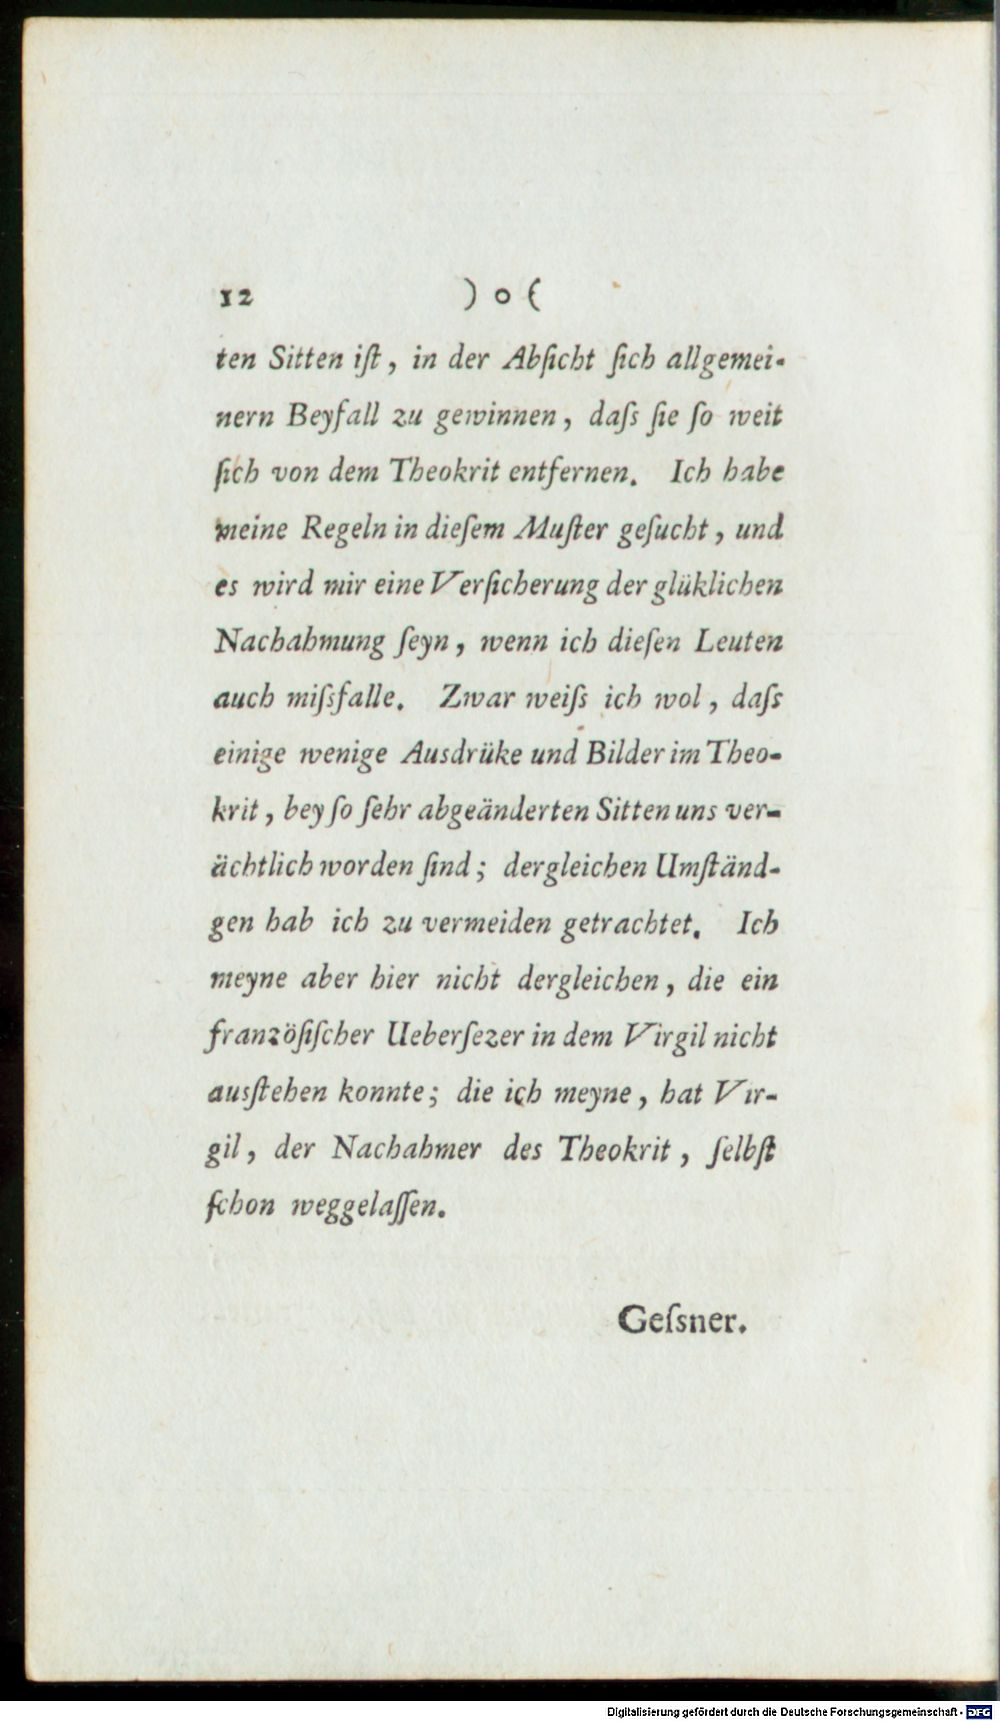 12 ) o (
ten Sitten iſt, in der Abſicht ſich allgemei-
nern Beyfall zu gewinnen, daſs ſie ſo weit
ſich von dem Theokrit entfernen. Ich habe
meine Regeln in dieſem Muſter geſucht, und
es wird mir eine Verſicherung der glüklichen
Nachahmung ſeyn, wenn ich dieſen Leuten
auch miſsfalle. Zwar weiſs ich wol, daſs
einige wenige Ausdrüke und Bilder im Theo-
krit, bey ſo ſehr abgeänderten Sitten uns ver-
ächtlich worden ſind; dergleichen Umſtänd-
gen hab ich zu vermeiden getrachtet. Ich
meyne aber hier nicht dergleichen, die ein
franzöſiſcher Ueberſezer in dem Virgil nicht
ausſtehen konnte; die ich meyne, hat Vir-
gil, der Nachahmer des Theokrit, ſelbſt
ſchon weggelaſſen.
Geſsner.
Digitalisierung gefördert durch die Deutsche Forschungsgemeinschaft - DFG